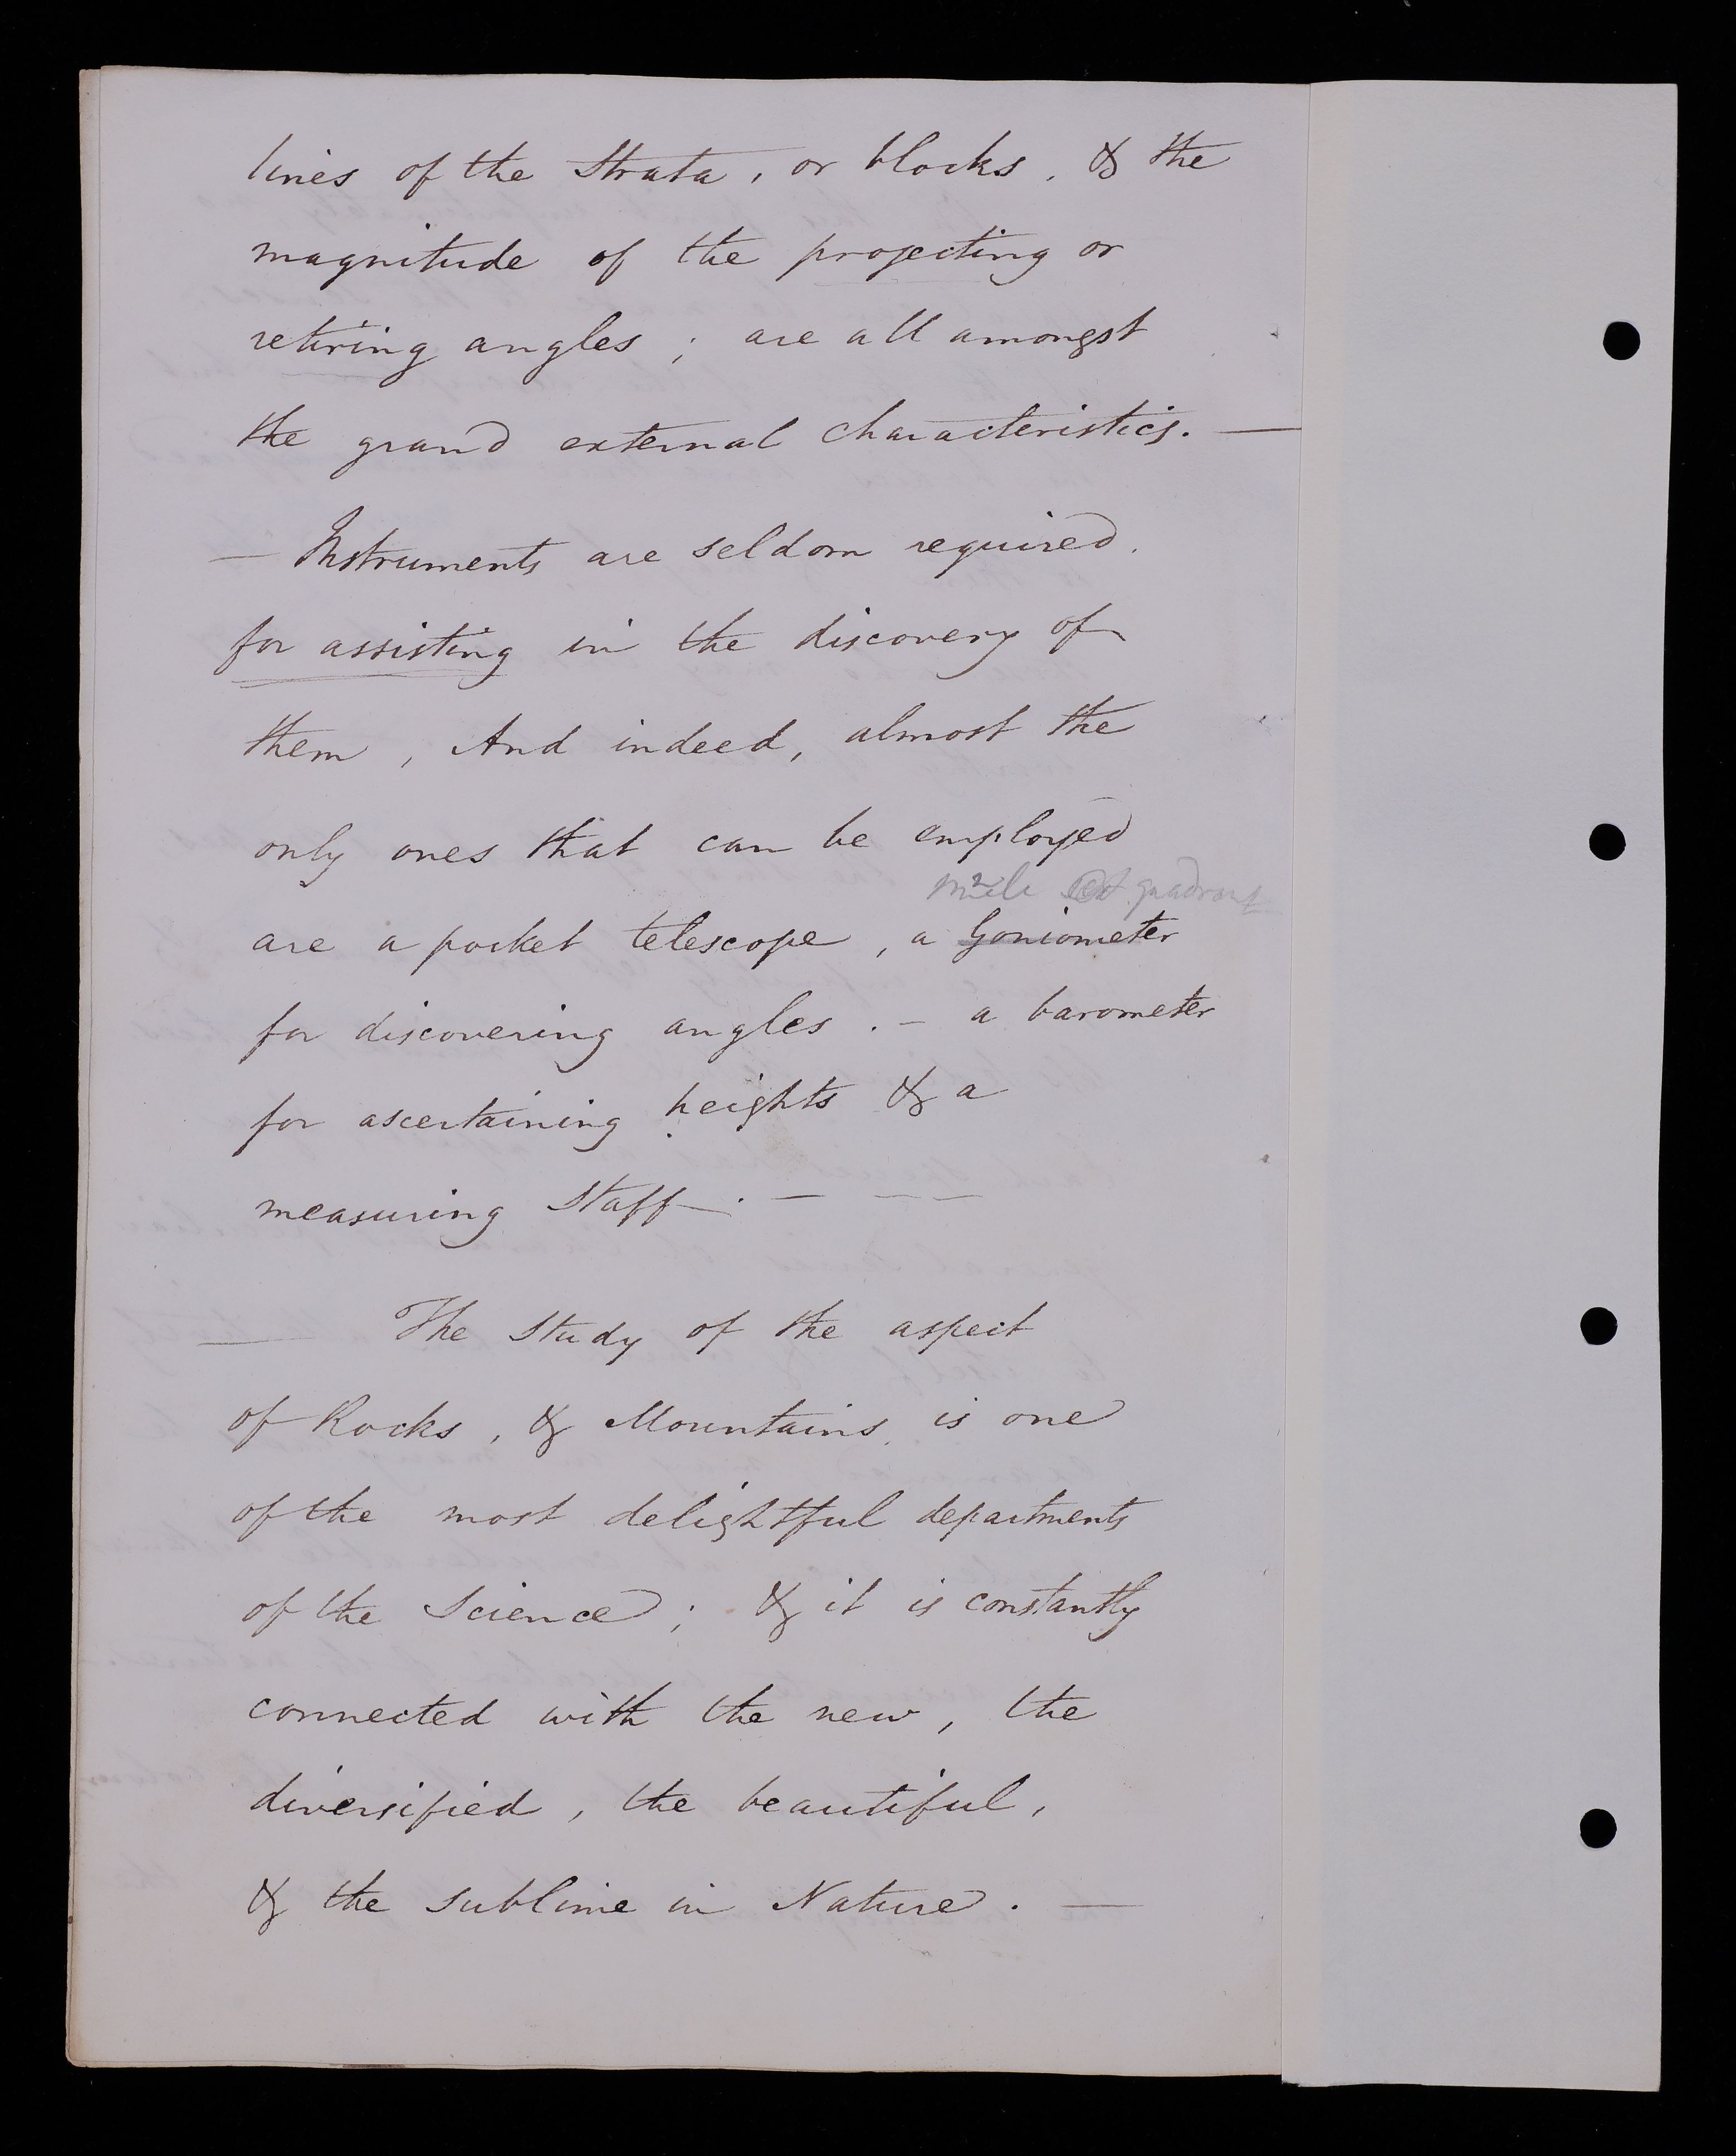 lines of the Strata, or blocks, & the
magnitude of the projecting or
retiring angles; are all amongst
the grand external characteristics. —
— Instruments are seldom required.
for assisting in the discovery of
them, And indeed, almost the
only ones that can be employed
quadrant
are a pocket telescope, a Goniometer
for discovering angles. – a barometer
for ascertaining heights & a
measuring Staff. — — —
— The Study of the aspect
of Rocks, & Mountains, is one
of the most delightful departments
of the Science; & it is constantly
connected with the new, the
diversified, the beautiful,
& the sublime in Nature. —